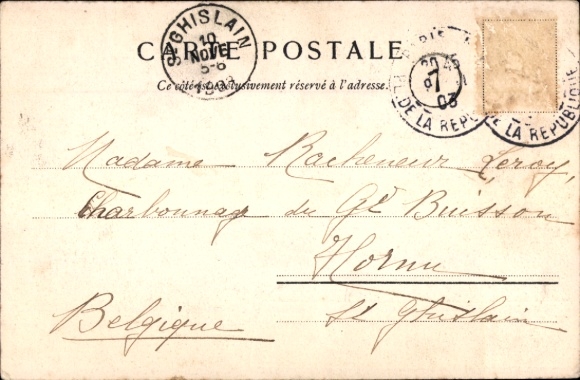 CARTE POSTALE
Ce côté est exclusivement réservé à l'adresse.
ST GHISLAIN
10
NOVE
5-6
PARIS
20 45
7
03
R. DE LA REPU
LA REPUBLIQUE
Madame Racheneur Leroy,
Charbonnage du Gd Buisson
Hornu
St Ghislain
Belgique